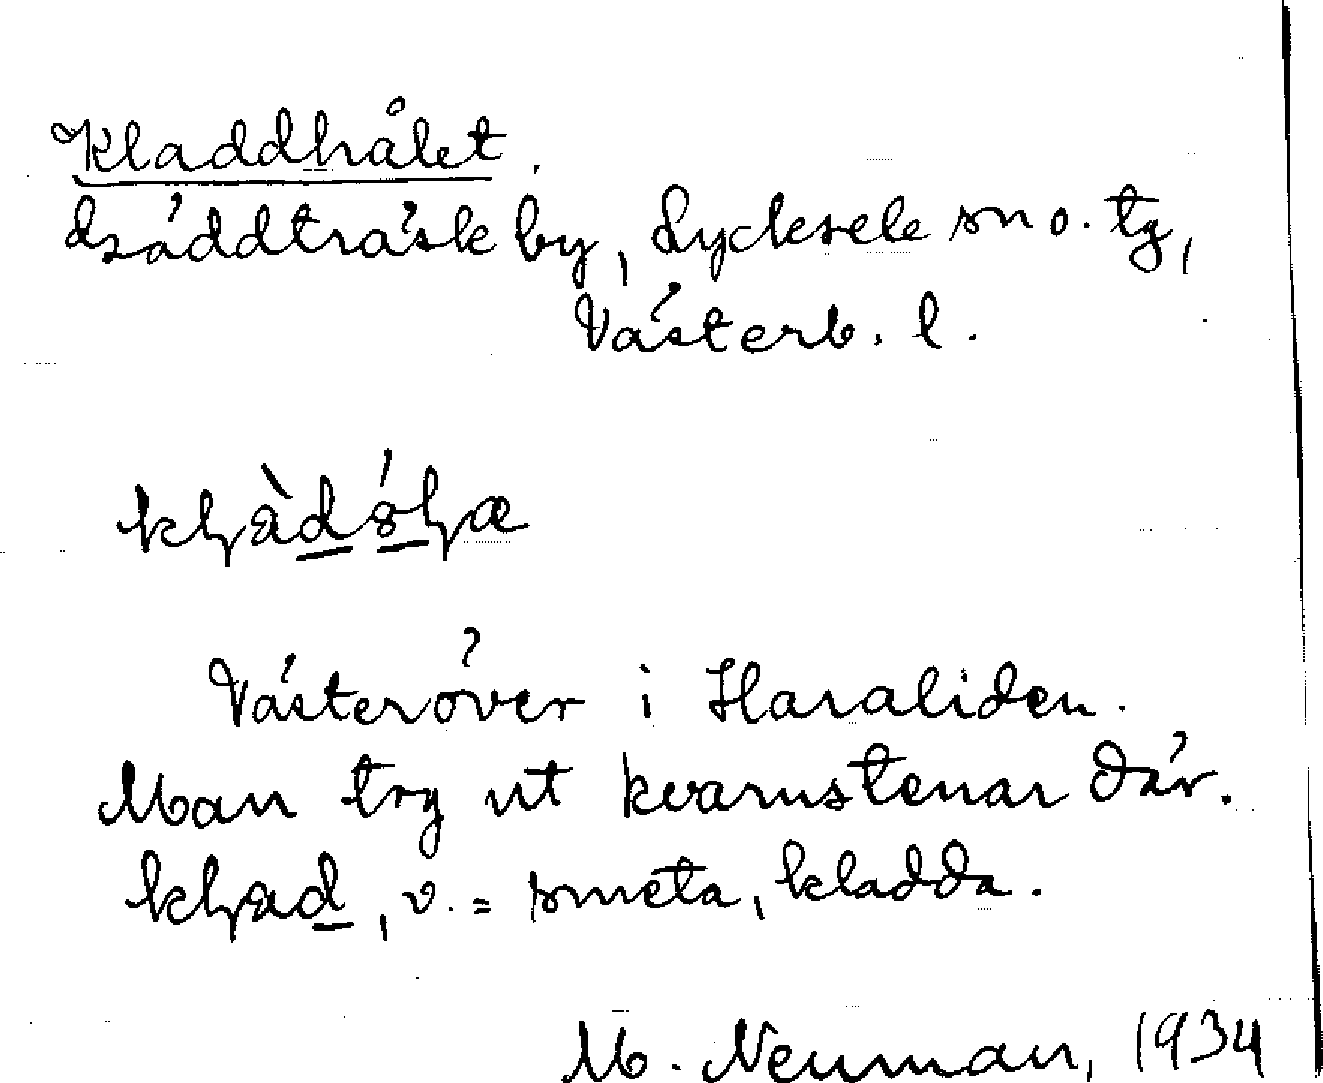 Kladdhålet.
Bräddträsk by, Lycksele sn o. tg,
Västerb. l.
Västeröver i Haraliden.
Man tog ut kvarnstenar där.
v. = smeta, kladda.
M. Neuman, 1934